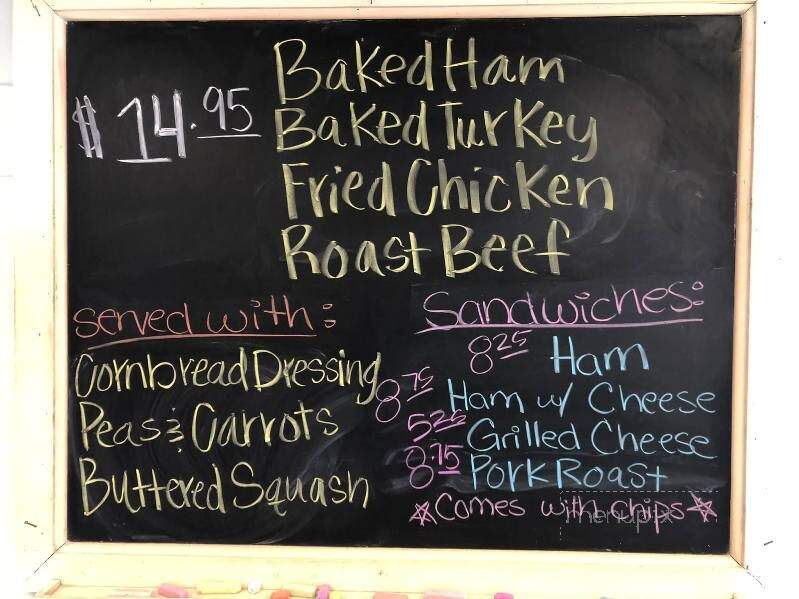 $14.95
Baked Ham
Baked Turkey
Fried Chicken
Roast Beef
Served with:
Cornbread Dressing
Peas & Carrots
Buttered Squash
Sandwiches:
8.25 Ham
8.75 Ham w/ Cheese
5.25 Grilled Cheese
8.75 Pork Roast
*Comes with chips*
menupix